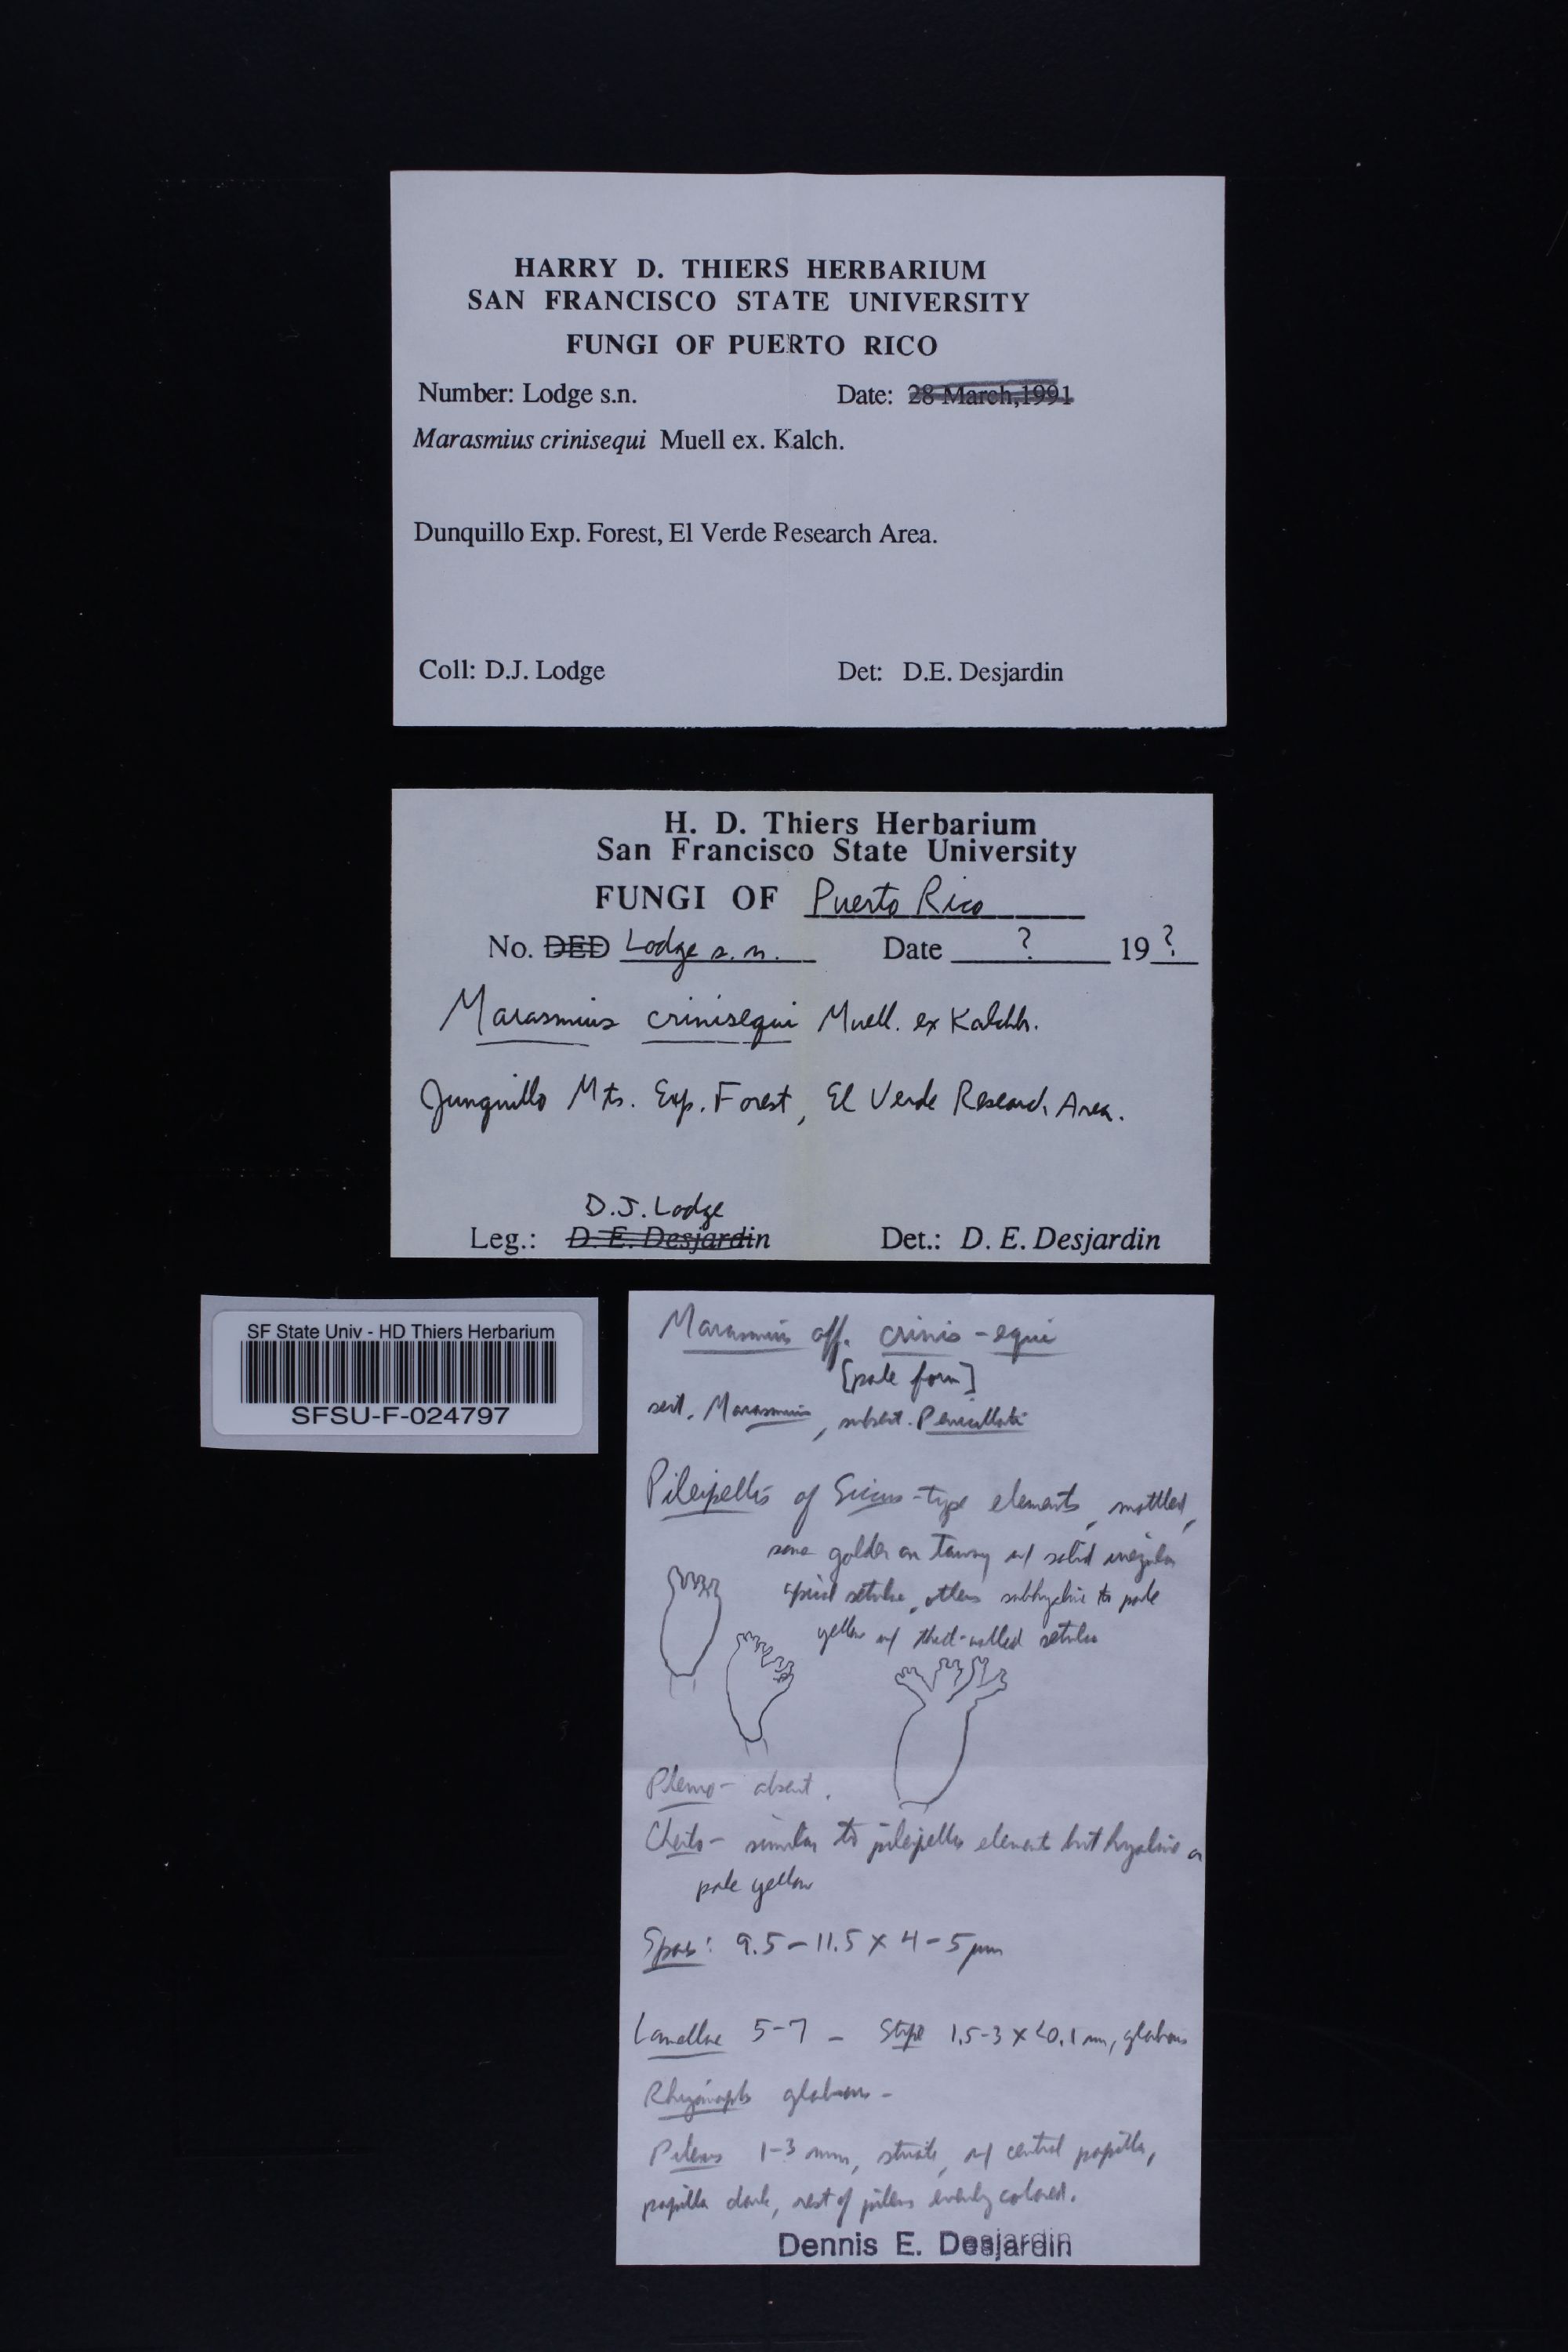 HARRY D. THIERS HERBARIUM
SAN FRANCISCO STATE UNIVERSITY
FUNGI OF PUERTO RICO
Number: Lodge s.n. Date: 28 March,1991
Marasmius crinisequi Muell ex. Kalch.
Dunquillo Exp. Forest, El Verde Research Area.
Coll: D.J. Lodge Det: D.E. Desjardin
H. D. Thiers Herbarium
San Francisco State University
FUNGI OF Puerto Rico
No. DED Lodge s.n. Date ? 19 ?
Marasmius crinisequi Muell. ex Kalchbr.
Junquillo Mts. Exp. Forest, El Verde Research Area.
D.J. Lodge
Leg.: D. E. Desjardin Det.: D. E. Desjardin
SF State Univ - HD Thiers Herbarium
SFSU-F-024797
Marasmius aff. crinis-equi
[pale form]
sect. Marasmius, subsect. Penicillati
Pileipellis of Siccus-type elements, mottled,
some golden or tawny w/ solid irregular
apical setulae, others subhyaline to pale
yellow w/ thick-walled setulae
Pleuro- absent.
Cheilo- similar to pileipellis element but hyaline or
pale yellow
Spores: 9.5-11.5 x 4-5 µm
Lamellae 5-7 - Stipe 1.5-3 x <0.1 mm, glabrous
Rhizomorphs glabrous -
Pileus 1-3 mm, striate, w/ central papilla,
papilla dark, rest of pileus evenly colored.
Dennis E. Desjardin